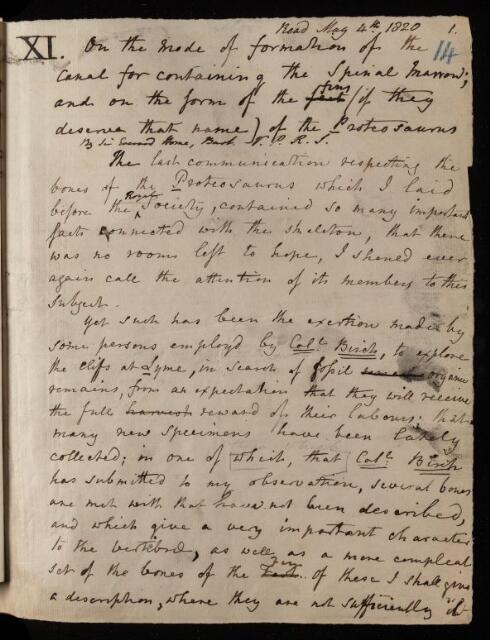 Read May 4th. 1820 1.
XI. On the mode of formation of the 14
Canal for containing the Spinal Marrow;
and on the form of the feet fins (if they
deserve that name) of the Proteosaurus
By Sir Everard Home, Bart. V. P. R. S.
The last communication respecting the
bones of the Proteosaurus which I laid
before the Royal Society, contained so many important
facts connected with the skeleton, that there
was no room left to hope, I should ever
again call the attention of its members to this
subject.
Yet such has been the exertion made by
some persons employd by Coll. Birch, to explore
the cliffs at Lyme, in search of fossil organic
remains, from an expectation that they will receive
the full harvest reward of their labours; that
many new specimens have been lately
collected; in one of which, that Coll. Birch
has submitted to my observation, several bones
are met with that have not been described,
and which give a very important character
to the vertebræ, as well as a more compleat
set of the bones of the Feet Fin. of these I shall give
a description, where they are not sufficiently